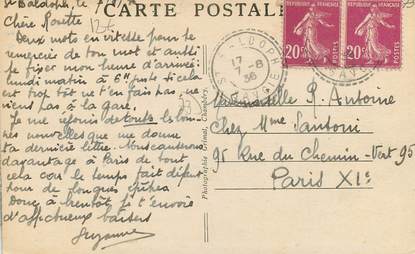 CARTE POSTALE
St Baldoph, le
Chère Rosette
Deux mots en vitesse pour te
remercier de ton mot et aussi
te fixer mon heure d'arrivée:
lundi matin à 6h si cela
est trop tôt ne t'en fais pas, ne
viens pas à la gare.
Je me réjouis de toutes les bon-
nes nouvelles que me donne
ta dernière lettre. Nous causerons
davantage à Paris de tout
cela car le temps fait défaut
pour de longues
Donc à bientôt, je t'envoie
d'affectueux baisers
Suzanne
Photographie Grimal, Chambéry.
BALDOPH
17 -8
36
SAVOIE
20c
20c
Mademoiselle R. Antoine
Chez Mme Santoni
95 Rue du Chemin-Vert 95
Paris XIe